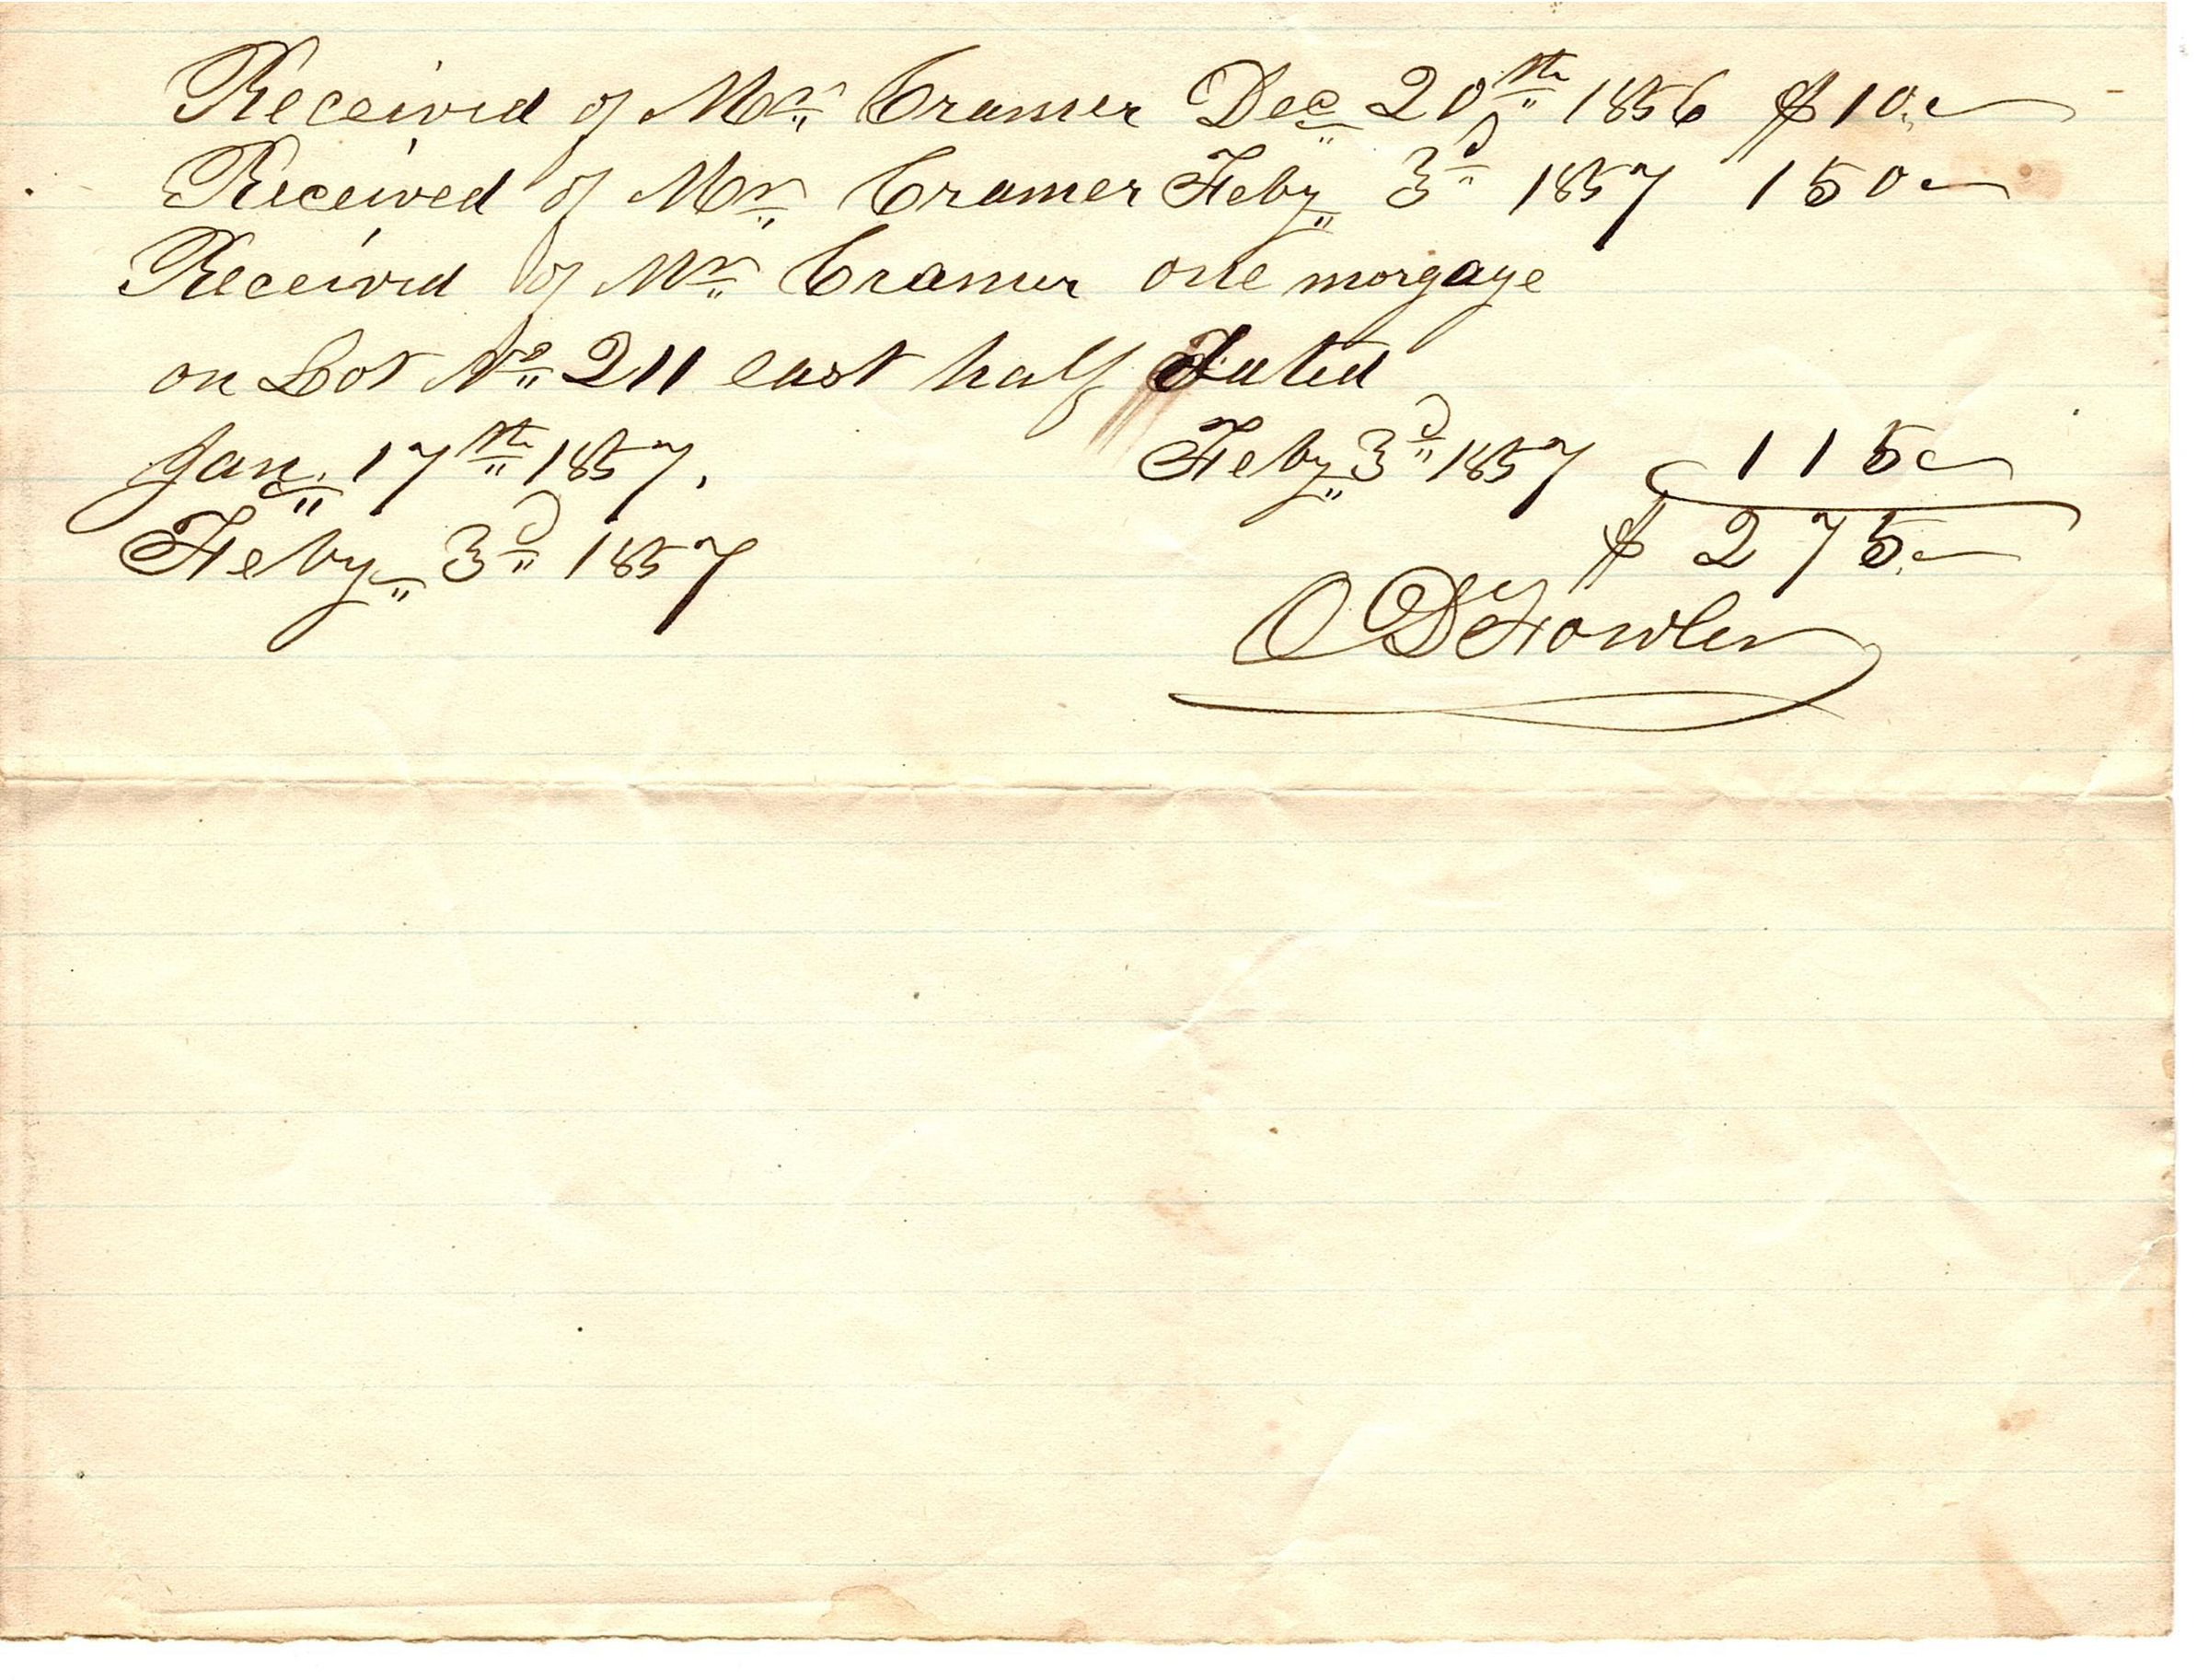 Received of Mr Cramer Dec 20th 1856 $10.
Received of Mr Cramer Feby 3d 1857 150
Received of Mr Cramer one morgage
on Lot No 211 east half Dated
Jan. 17th 1857. Feby 3d 1857 115
Feby 3d 1857 $ 275.
O D Fowler